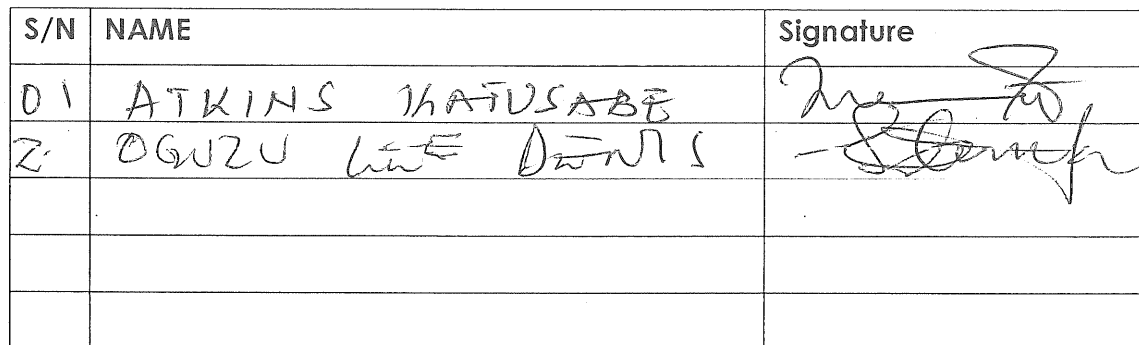 S/N NAME Signature
01 ATKINS KATUSABE
2. OGUZU LEE DENIS